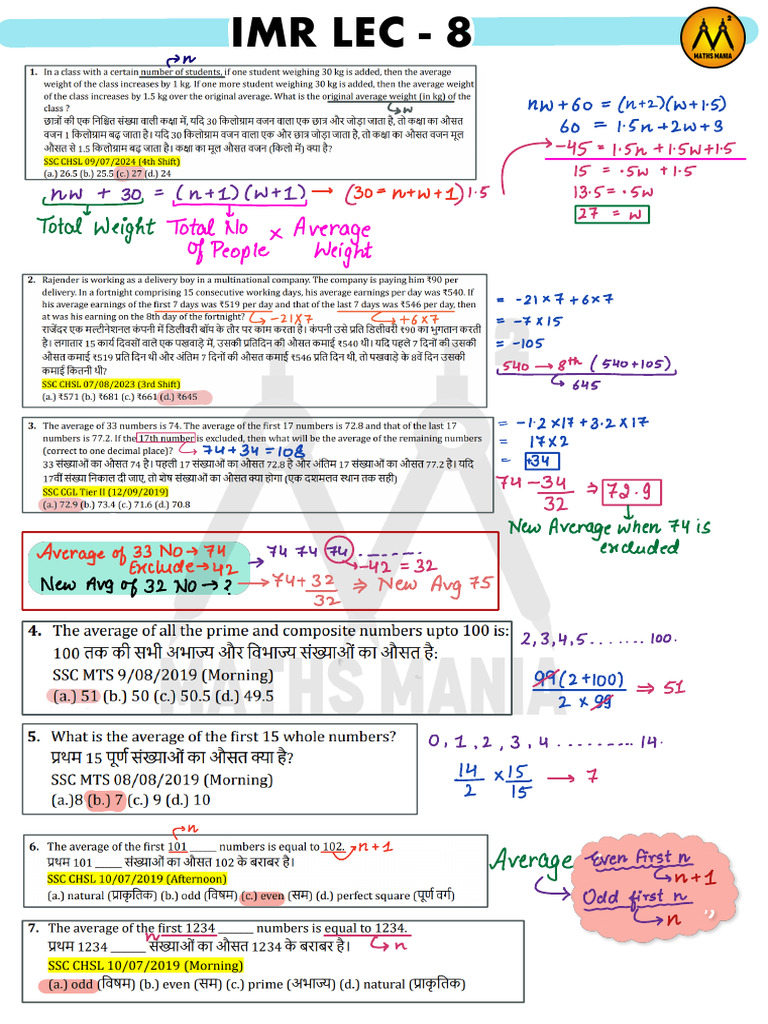 IMR LEC - 8
MATHS MANIA
2
→ n
1. In a class with a certain number of students, if one student weighing 30 kg is added, then the average
weight of the class increases by 1 kg. If one more student weighing 30 kg is added, then the average weight
of the class increases by 1.5 kg over the original average. What is the original average weight (in kg) of the
class ?
→ w
छात्रों की एक निश्चित संख्या वाली कक्षा में, यदि 30 किलोग्राम वजन वाला एक छात्र और जोड़ा जाता है, तो कक्षा का औसत
वजन 1 किलोग्राम बढ़ जाता है। यदि 30 किलोग्राम वजन वाला एक और छात्र जोड़ा जाता है, तो कक्षा का औसत वजन मूल
औसत से 1.5 किलोग्राम बढ़ जाता है। कक्षा का मूल औसत वजन (किलो में) क्या है?
SSC CHSL 09/07/2024 (4th Shift)
(a.) 26.5 (b.) 25.5 (c.) 27 (d.) 24
nw + 60 = (n+2)(w+1.5)
60 = 1.5n + 2w + 3
-45 = 1.5n + 1.5w + 1.5
15 = .5w + 1.5
13.5 = .5w
27 = w
nw + 30 = (n+1)(w+1) → (30 = n+w+1) 1.5
Total Weight Total No of People × Average Weight
2. Rajender is working as a delivery boy in a multinational company. The company is paying him ₹90 per
delivery. In a fortnight comprising 15 consecutive working days, his average earnings per day was ₹540. If
his average earnings of the first 7 days was ₹519 per day and that of the last 7 days was ₹546 per day, then
at was his earning on the 8th day of the fortnight?
→ -21×7 → +6×7
राजेंदर एक मल्टीनेशनल कंपनी में डिलीवरी बॉय के तौर पर काम करता है। कंपनी उसे प्रति डिलीवरी ₹90 का भुगतान करती
है। लगातार 15 कार्य दिवसों वाले एक पखवाड़े में, उसकी प्रतिदिन की औसत कमाई ₹540 थी। यदि पहले 7 दिनों की उसकी
औसत कमाई ₹519 प्रति दिन थी और अंतिम 7 दिनों की औसत कमाई ₹546 प्रति दिन थी, तो पखवाड़े के 8वें दिन उसकी
कमाई कितनी थी?
SSC CHSL 07/08/2023 (3rd Shift)
(a.) ₹571 (b.) ₹681 (c.) ₹661 (d.) ₹645
= -21×7 + 6×7
= -7×15
= -105
540 → 8th (540+105)
→ 645
3. The average of 33 numbers is 74. The average of the first 17 numbers is 72.8 and that of the last 17
numbers is 77.2. If the 17th number is excluded, then what will be the average of the remaining numbers
(correct to one decimal place)?
→ 74+34 = 108
33 संख्याओं का औसत 74 है। पहली 17 संख्याओं का औसत 72.8 है और अंतिम 17 संख्याओं का औसत 77.2 है। यदि
17वीं संख्या निकाल दी जाए, तो शेष संख्याओं का औसत क्या होगा (एक दशमलव स्थान तक सही)
SSC CGL Tier II (12/09/2019)
(a.) 72.9 (b.) 73.4 (c.) 71.6 (d.) 70.8
= -1.2×17 + 3.2×17
= 17×2
= +34
74 - 34/32 ⇒ 72.9
New Average when 74 is
excluded
Average of 33 No → 74
Exclude → 42
New Avg of 32 No → ?
→ 74 74 74 .......
→ -42 = 32
→ 74 + 32/32 ⇒ New Avg 75
4. The average of all the prime and composite numbers upto 100 is:
100 तक की सभी अभाज्य और विभाज्य संख्याओं का औसत है:
SSC MTS 9/08/2019 (Morning)
(a.) 51 (b.) 50 (c.) 50.5 (d.) 49.5
2, 3, 4, 5 ....... 100.
99(2+100)/2×99 ⇒ 51
5. What is the average of the first 15 whole numbers?
प्रथम 15 पूर्ण संख्याओं का औसत क्या है?
SSC MTS 08/08/2019 (Morning)
(a.)8 (b.) 7 (c.) 9 (d.) 10
0, 1, 2, 3, 4 ......... 14.
14/2 × 15/15 → 7
→ n
6. The average of the first 101 _____ numbers is equal to 102. → n+1
प्रथम 101 _____ संख्याओं का औसत 102 के बराबर है।
SSC CHSL 10/07/2019 (Afternoon)
(a.) natural (प्राकृतिक) (b.) odd (विषम) (c.) even (सम) (d.) perfect square (पूर्ण वर्ग)
Average
Even first n
→ n+1
Odd first n
→ n
7. The average of the first 1234 ______ numbers is equal to 1234.
n → n
प्रथम 1234 ______ संख्याओं का औसत 1234 के बराबर है।
SSC CHSL 10/07/2019 (Morning)
(a.) odd (विषम) (b.) even (सम) (c.) prime (अभाज्य) (d.) natural (प्राकृतिक)
2
MATHS MANIA